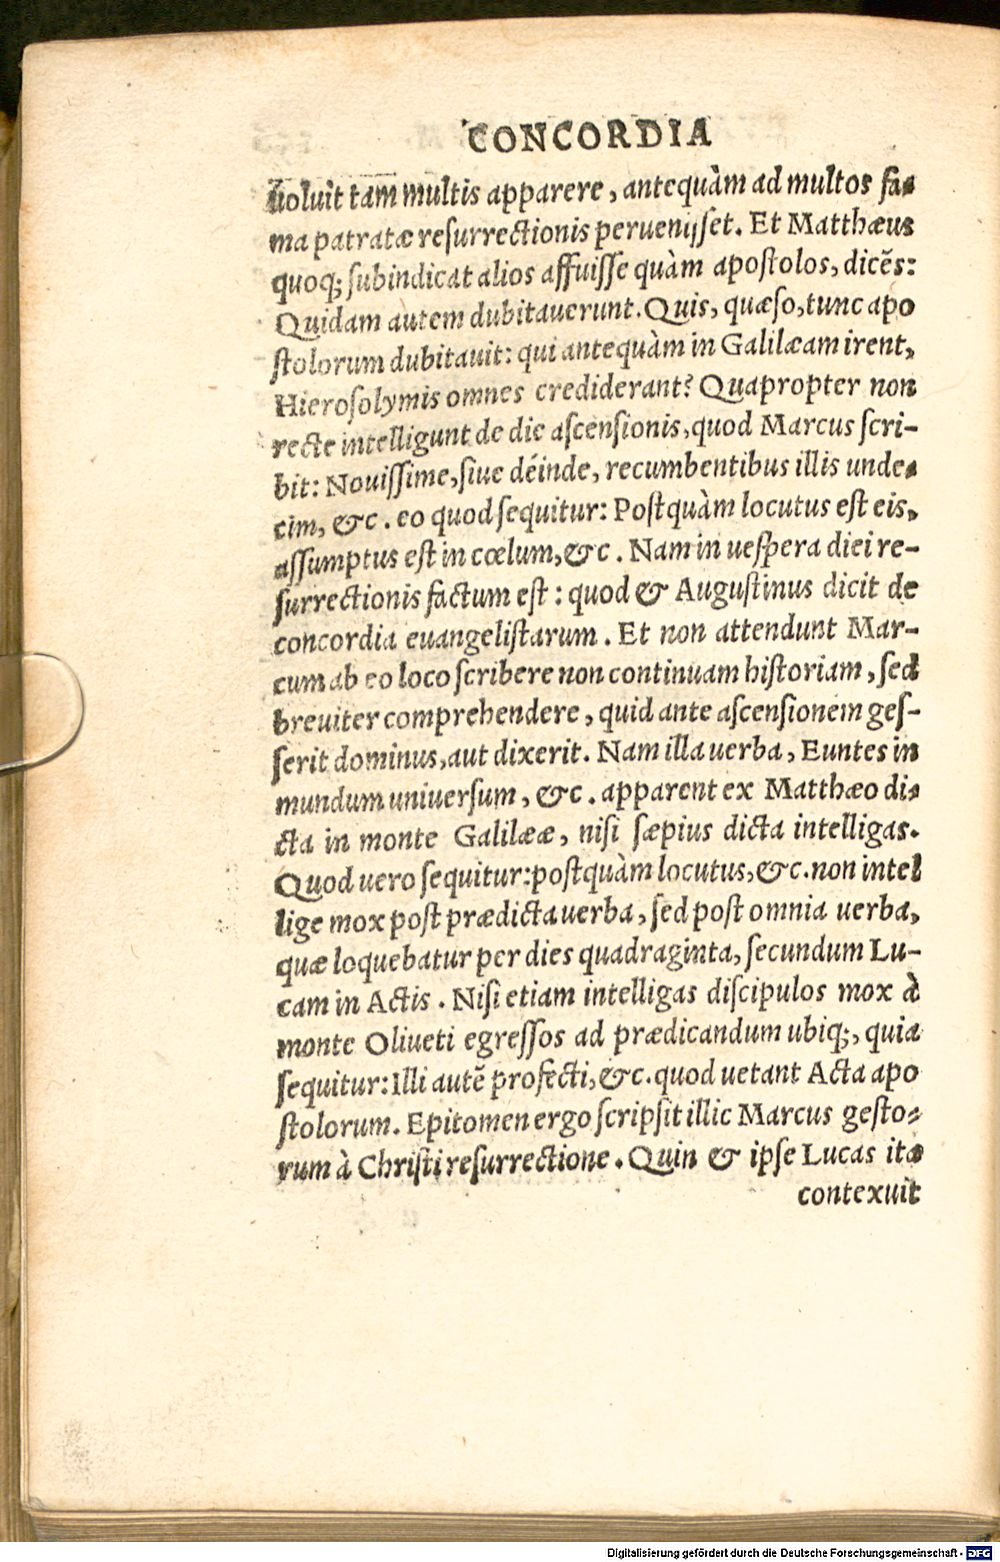 CONCORDIA
uoluit tam multis apparere, antequàm ad multos fa-
ma patratæ resurrectionis peruenijset. Et Matthæus
quoq; subindicat alios affuisse quàm apostolos, dicẽs:
Quidam autem dubitauerunt. Quis, quæso, tunc apo
stolorum dubitauit: qui antequàm in Galilæam irent,
Hierosolymis omnes crediderant? Quapropter non
recte intelligunt de die ascensionis, quod Marcus scri-
bit: Nouissime, siue déinde, recumbentibus illis unde-
cim, &c. eo quod sequitur: Postquàm locutus est eis,
assumptus est in cœlum, &c. Nam in uespera diei re-
surrectionis factum est: quod & Augustinus dicit de
concordia euangelistarum. Et non attendunt Mar-
cum ab eo loco scribere non continuam historiam, sed
breuiter comprehendere, quid ante ascensionem ges-
serit dominus, aut dixerit. Nam illa uerba, Euntes in
mundum uniuersum, &c. apparent ex Matthæo di-
cta in monte Galilææ, nisi sæpius dicta intelligas.
Quod uero sequitur: postquàm locutus, &c. non intel
lige mox post prædicta uerba, sed post omnia uerba,
quæ loquebatur per dies quadraginta, secundum Lu-
cam in Actis. Nisi etiam intelligas discipulos mox à
monte Oliueti egressos ad prædicandum ubiq;, quia
sequitur: Illi autẽ profecti, &c. quod uetant Acta apo
stolorum. Epitomen ergo scripsit illic Marcus gesto-
rum à Christi resurrectione. Quin & ipse Lucas ita
contexuit
Digitalisierung gefördert durch die Deutsche Forschungsgemeinschaft - DFG